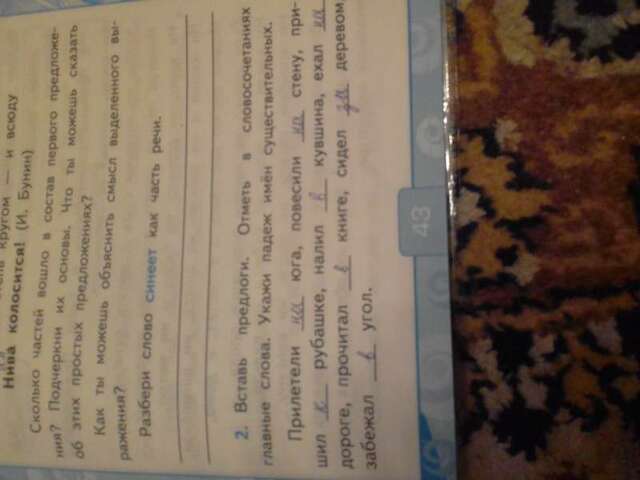 кругом — и всюду
Нива колосится! (И. Бунин)
Сколько частей вошло в состав первого предложе-
ния? Подчеркни их основы. Что ты можешь сказать
об этих простых предложениях?
Как ты можешь объяснить смысл выделенного вы-
ражения?
Разбери слово синеет как часть речи.
2. Вставь предлоги. Отметь в словосочетаниях
главные слова. Укажи падеж имён существительных.
Прилетели на юга, повесили на стену, при-
шил к рубашке, налил в кувшина, ехал на
дороге, прочитал в книге, сидел за деревом,
забежал в угол.
43